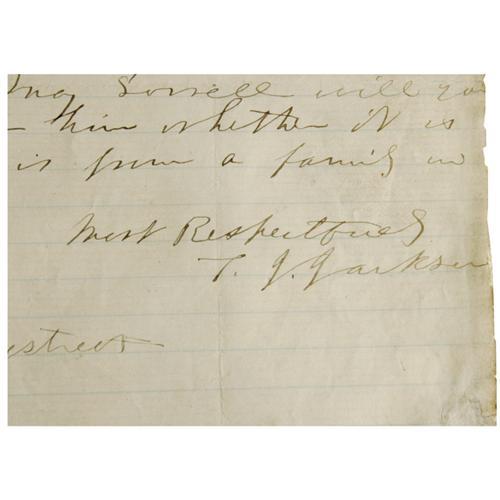 Sorrell will yo
him whether it is
is from a family in
Most Respectfully
T. J. Jackson
street